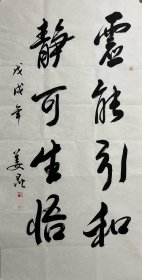 靈能引和
静可生悟
戊戌年
姜昆